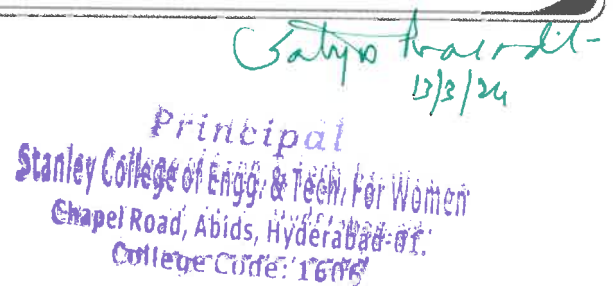 Satya
13/3/24
Principal
Stanley College of Engg. & Tech. For Women
Chapel Road, Abids, Hyderabad-01.
College Code: 1606